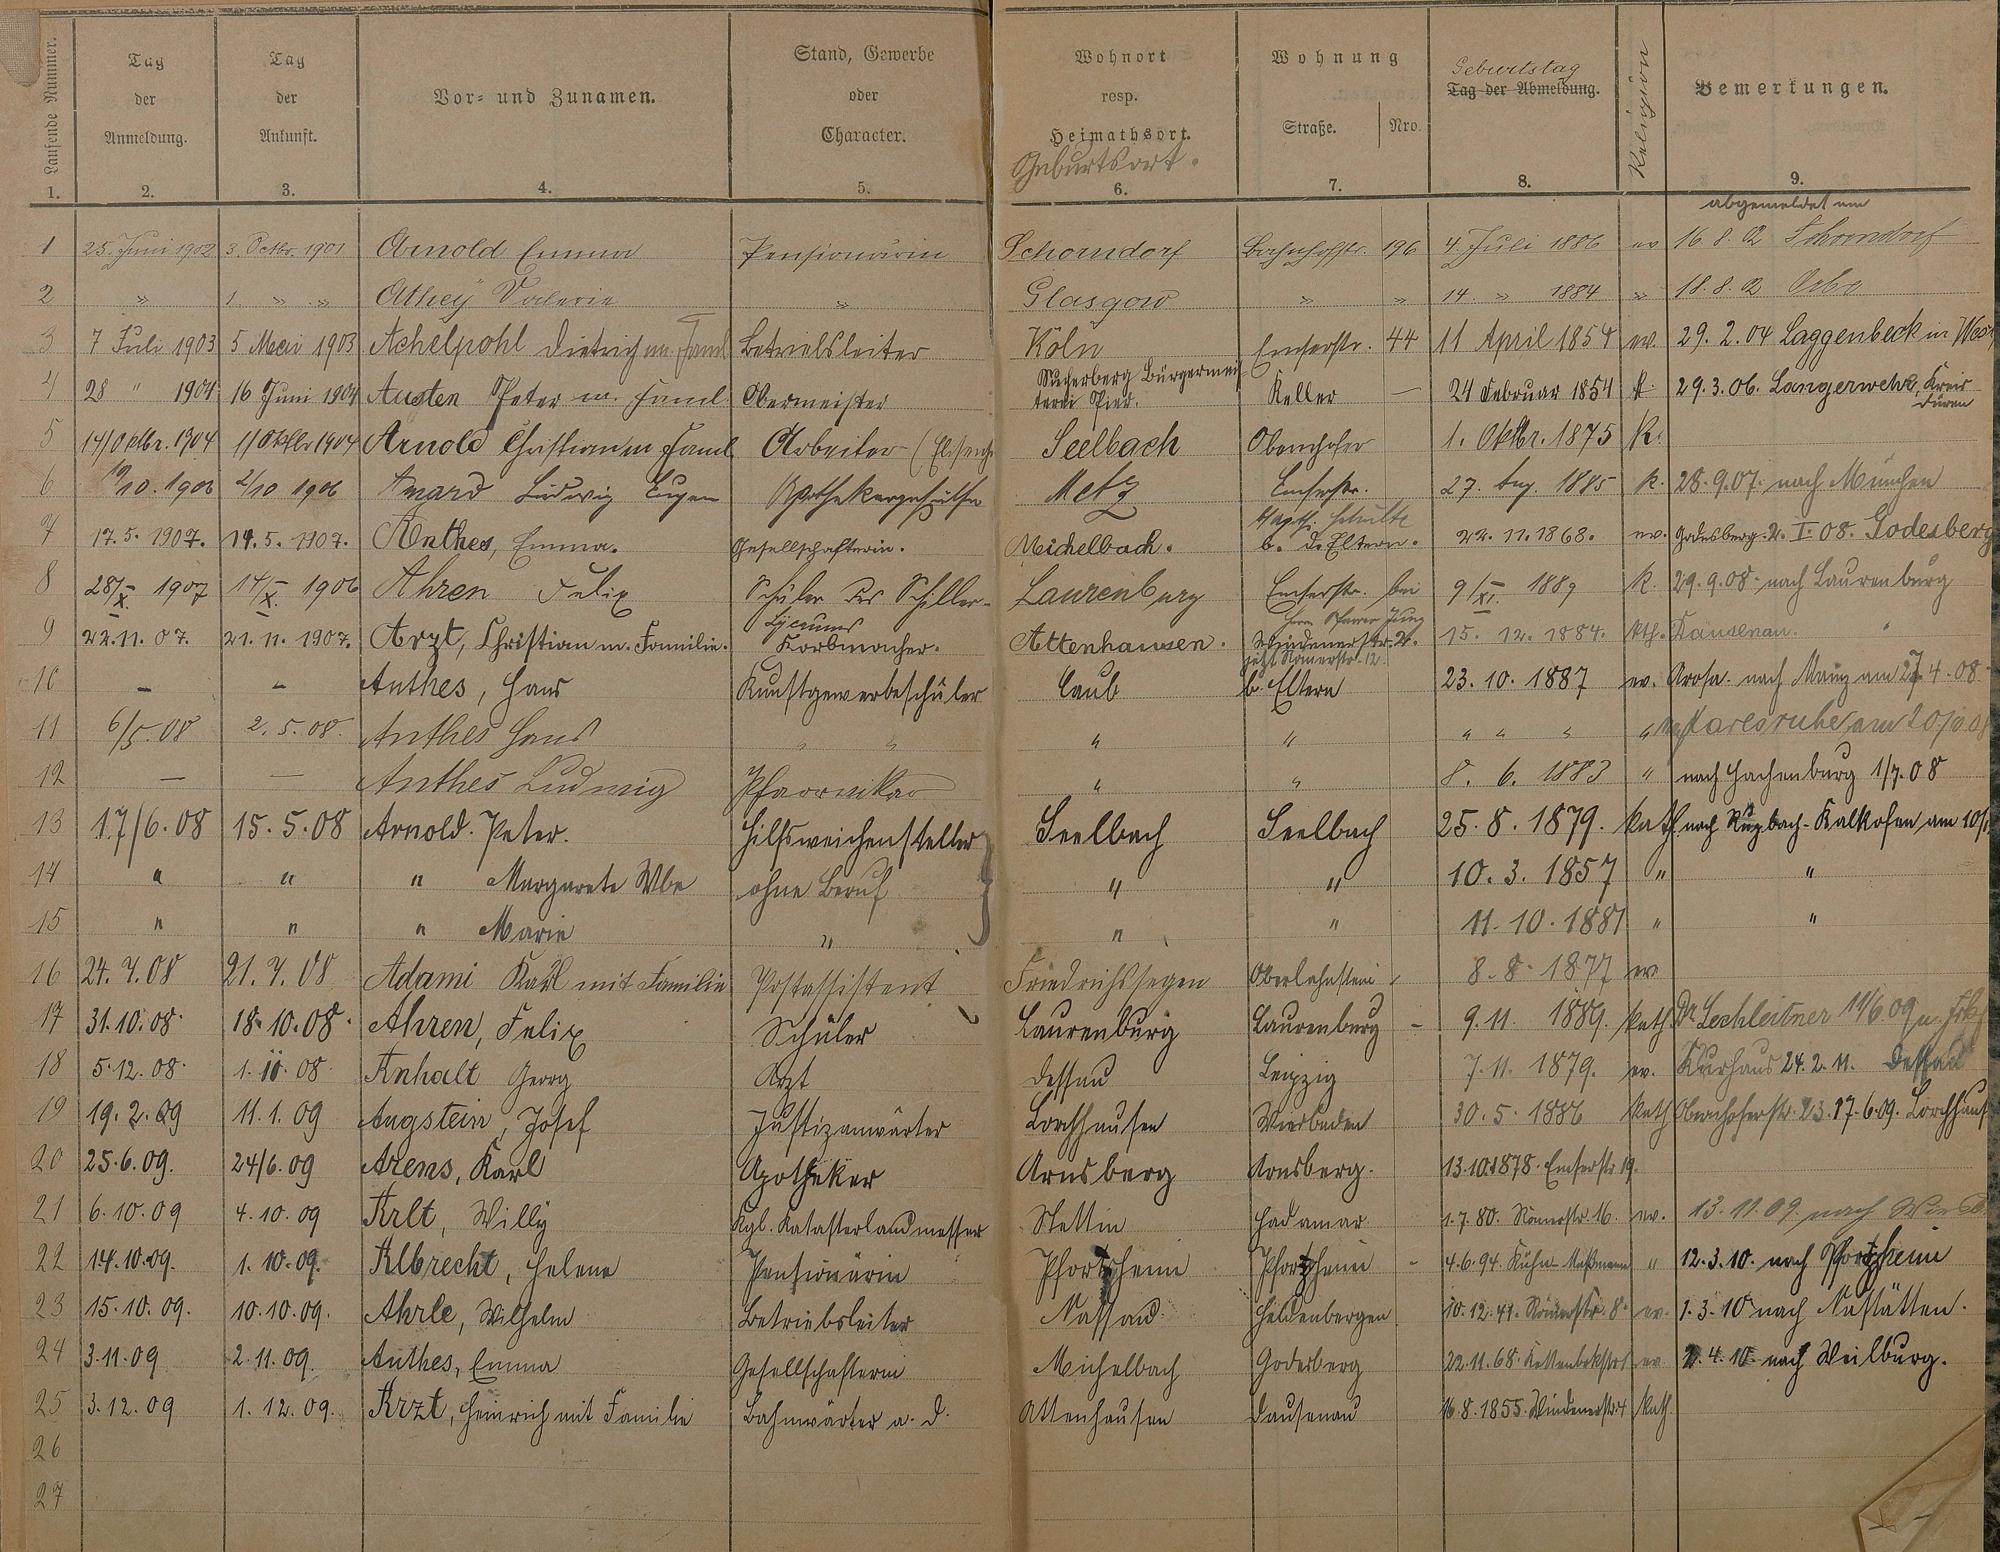 Laufende Nummer.
Tag der Anmeldung.
Tag der Ankunft.
Vor- und Zunamen.
Stand, Gewerbe oder Character.
Wohnort resp. Heimathsort.
Geburtsort.
Wohnung
Straße. Nro.
Geburtstag
Tag der Abmeldung.
Religion
Bemerkungen.
1. 2. 3. 4. 5. 6. 7. 8. 9.
abgemeldet am
1 25. Juni 1902 3. Octbr. 1901 Arnold Emma Pensionärin Schorndorf Bahnhofstr. 196 4. Juli 1886 ev 16.8.02 Schorndorf
2 " 1. " " Athey Valerie " Glasgow " " 14. " 1884 " 18.8.02
3 7 Juli 1903 5 Mai 1903 Achelpohl Dietrich m. Faml Betriebsleiter Köln Emserstr. 44 11 April 1854 ev. 29.2.04 Laggenbeck in
4 28 " 1904 16 Juni 1904 Austen Peter m. Faml. Obermeister Bürgermeisterei Pier. Keller — 24 Februar 1854 k. 29.3.06. Langerwehe, Kreis Düren
5 14/Oktbr. 1904 1/Oktbr 1904 Arnold Christian m Faml Arbeiter Seelbach Obernhofer 1. Oktbr. 1875 K.
6 10/10. 1906 2/10 1906 Amard Ludwig Eugen Apothekergehülfe Metz Emserstr. 27. Aug. 1885 k. 28.9.07. nach München
7 17.5. 1907. 14.5. 1907. Anthes, Emma. Gesellschafterin. Michelbach. b. d. Eltern. 22.11.1868. ev. Godesberg. 2.I.08. Godesberg
8 28/X. 1907 14/X. 1906 Ahren Felix Schüler des Schiller-Lyceums Laurenburg Emserstr. bei Herrn Pfarrer Jung 9/XI. 1889 k. 29.9.08. nach Laurenburg
9 22.11.07. 21.11.1907. Arzt, Christian m. Familie. Korbmacher. Attenhausen. Windenerstr. 2. jetzt Römerstr. 12. 15. 12. 1884. kth. Dausenau.
10 - - Anthes, Hans Kunstgewerbeschüler Caub b. Eltern 23. 10. 1887 ev. Arosa. nach Mainz am 27.4.08.
11 6/5.08 2.5.08. Anthes Hans " " " " " " " " Karlsruhe am
12 — — Anthes Ludwig Pfarrvikar " " 8. 6. 1883 " nach Hachenburg 1/7.08
13 17/6.08 15.5.08 Arnold. Peter. Hilfsweichensteller Seelbach Seelbach 25.8.1879. kath. nach Kalkofen am
14 " " " Margarete Wwe ohne Beruf " " 10.3.1857 " "
15 " " " Marie " " " 11.10.1881 " "
16 24.7.08 21.7.08 Adami Karl mit Familie Postassistent Friedrichssegen Oberlahnstein 8.8.1877 ev
17 31.10.08. 18.10.08. Ahren, Felix Schüler Laurenburg Laurenburg - 9.11. 1889. kath. Dr. Lechleitner 11/6.09
18 5.12.08. 1.11.08. Anhalt Georg Arzt Dessau Leipzig 7.11.1879. ev. Kurhaus 24.2.11. Dessau
19 19.2.09 11.1.09 Augstein, Josef Justizanwärter Lorchhausen Wiesbaden 30.5.1886 kath Obernhoferstr. 23. 17.6.09. Lorchhaus
20 25.6.09. 24/6.09 Arens, Karl Apotheker Arnsberg Arnsberg. 13.10.1878. Emserstr 19.
21 6.10.09 4.10.09 Arlt, Willy Kgl. Katasterlandmesser Stettin Hadamar 1.7.80. Römerstr. 16. ev. 13.11.09 nach Wiesb.
22 14.10.09. 1.10.09. Albrecht, Helene Pensionärin Pfortzheim Pfortzheim - 4.6.94. " 12.3.10. nach Pfortzheim
23 15.10.09. 10.10.09. Ahrle, Wilhelm Betriebsleiter Nassau Heldenbergen 10.12.41. Römerstr. 8. ev. 1.3.10 nach Nastätten.
24 3.11.09 2.11.09. Anthes, Emma Gesellschafterin Michelbach Godesberg 22.11.68. ev. 2.4.10. nach Weilburg.
25 3.12.09 1.12.09. Arzt, Heinrich mit Familie Bahnwärter a. D. Attenhausen Dausenau 16.8.1855. Windenerstr. 4 kath.
26
27